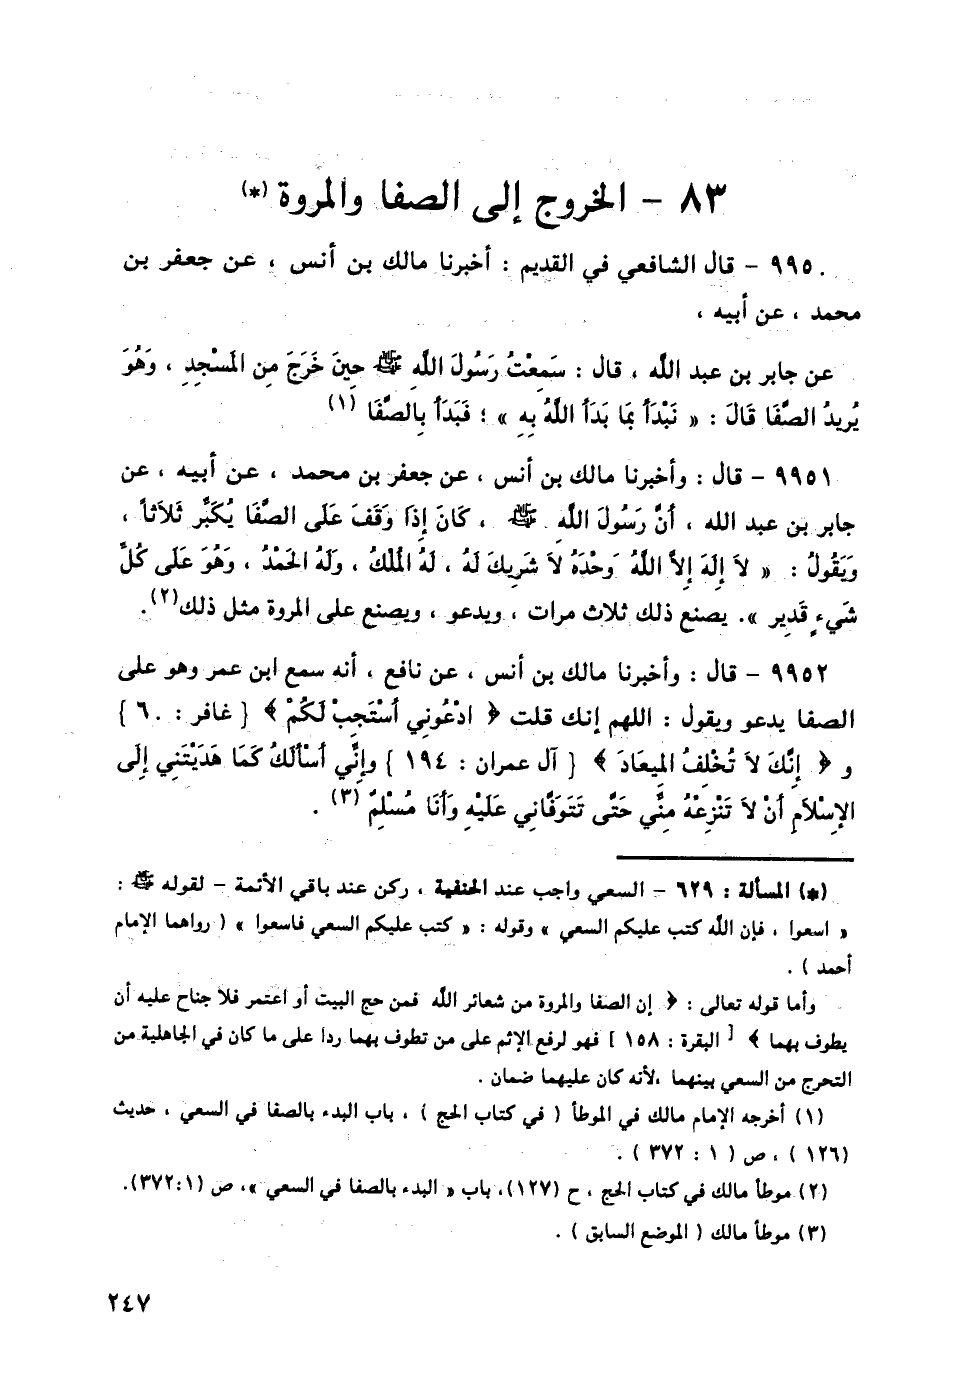 ٨٣ - الخروج إلى الصفا والمروة (*)
٩٩٥٠ - قال الشافعي في القديم : أخبرنا مالك بن أنس ، عن جعفر بن
محمد ، عن أبيه ،
عن جابر بن عبد الله ، قال : سَمِعْتُ رَسُولَ اللَّهِ ﷺ حِينَ خَرَجَ مِنَ المَسْجِدِ ، وَهُوَ
يُرِيدُ الصَّفَا قَالَ : « نَبْدَأُ بمَا بَدَأَ اللَّهُ بِهِ » ؛ فَبَدَأَ بِالصَّفَا (١)
٩٩٥١ - قال : وأخبرنا مالك بن أنس ، عن جعفر بن محمد ، عن أبيه ، عن
جابر بن عبد الله ، أَنَّ رَسُولَ اللَّهِ ﷺ ، كَانَ إِذَا وَقَفَ عَلَى الصَّفَا يُكَبِّر ثَلاَثاً ،
وَيَقُولُ : « لاَ إِلَهَ إِلاَّ اللَّهُ وَحْدَهُ لاَ شَرِيكَ لَهُ ، لَهُ الْمُلْكُ ، وَلَهُ الحَمْدُ ، وَهُوَ عَلَى كُلِّ
شَيءٍ قَدِير ». يصنع ذلك ثلاث مرات ، ويدعو ، ويصنع على المروة مثل ذلك(٢).
٩٩٥٢ - قال : وأخبرنا مالك بن أنس ، عن نافع ، أنه سمع ابن عمر وهو على
الصفا يدعو ويقول : اللهم إنك قلت ﴿ ادْعُونِي أَسْتَجِبْ لَكُمْ ﴾ [ غافر : ٦٠ ]
و ﴿ إِنَّكَ لاَ تُخْلِفُ المِيعَادَ ﴾ [ آل عمران : ١٩٤ ] وإِنِّي أَسْأَلُكَ كَمَا هَدَيْتَنِي إِلَى
الإِسْلاَمِ أَنْ لاَ تَنْزِعْهُ مِنِّي حَتَّى تَتَوَفَّانِي عَلَيْهِ وَأَنَا مُسْلِمٌ (٣) .
(*) المسألة : ٦٢٩ - السعي واجب عند الحنفية ، ركن عند باقي الأئمة - لقوله ﷺ :
« اسعوا ، فإن الله كتب عليكم السعي » وقوله : « كتب عليكم السعي فاسعوا » ( رواهما الإمام
أحمد ) .
وأما قوله تعالى : ﴿ إن الصفا والمروة من شعائر الله فمن حج البيت أو اعتمر فلا جناح عليه أن
يطوف بهما ﴾ [ البقرة : ١٥٨ ] فهو لرفع الإثم على من تطوف بهما ردا على ما كان في الجاهلية من
التحرج من السعي بينهما ،لأنه كان عليهما ضمان .
(١) أخرجه الإمام مالك في الموطأ ( في كتاب الحج ) ، باب البدء بالصفا في السعي ، حديث
(١٢٦ ) ، ص ( ١ : ٣٧٢ ) .
(٢) موطأ مالك في كتاب الحج ، ح (١٢٧)، باب « البدء بالصفا في السعي »، ص (٣٧٢:١).
(٣) موطأ مالك ( الموضع السابق ) .
٢٤٧